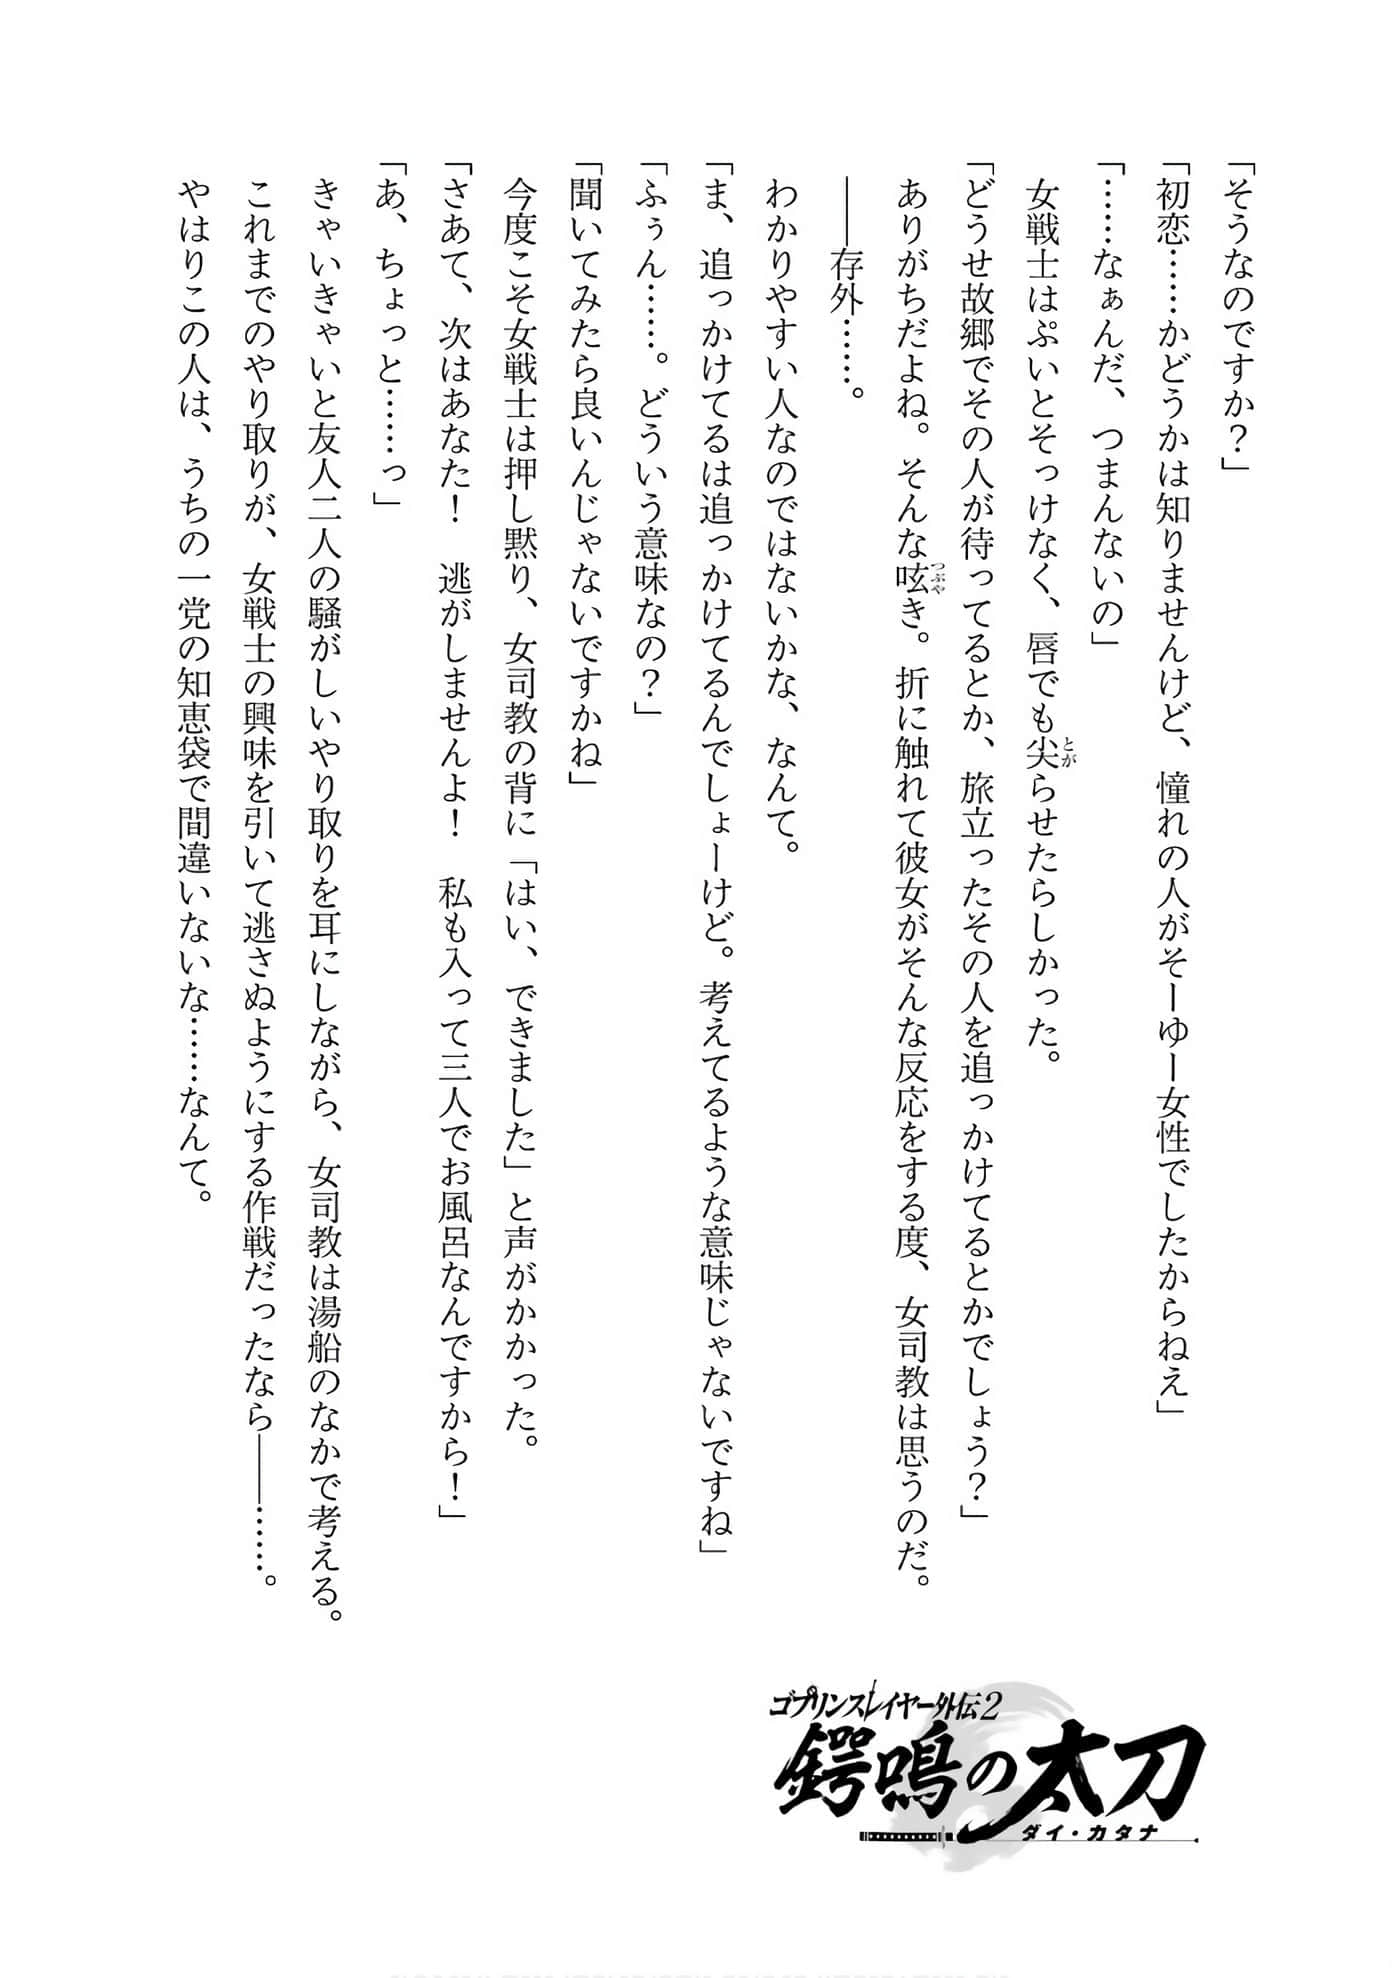 「そうなのですか？」
「初恋……かどうかは知りませんけど、憧れの人がそーゆー女性でしたからねえ」
「……なぁんだ、つまんないの」
女戦士はぷいとそっけなく、唇でも尖らせたらしかった。
とが
「どうせ故郷でその人が待ってるとか、旅立ったその人を追っかけてるとかでしょう？」
ありがちだよね。そんな呟き。折に触れて彼女がそんな反応をする度、女司教は思うのだ。
つぶや
――存外……。
わかりやすい人なのではないかな、なんて。
「ま、追っかけてるは追っかけてるんでしょーけど。考えてるような意味じゃないですね」
「ふぅん……。どういう意味なの？」
「聞いてみたら良いんじゃないですかね」
今度こそ女戦士は押し黙り、女司教の背に「はい、できました」と声がかかった。
「さあて、次はあなた！　逃がしませんよ！　私も入って三人でお風呂なんですから！」
「あ、ちょっと……っ」
きゃいきゃいと友人二人の騒がしいやり取りを耳にしながら、女司教は湯船のなかで考える。
これまでのやり取りが、女戦士の興味を引いて逃さぬようにする作戦だったなら――……。
やはりこの人は、うちの一党の知恵袋で間違いないな……なんて。
ゴブリンスレイヤー外伝2
鍔鳴の太刀
ダイ・カタナ